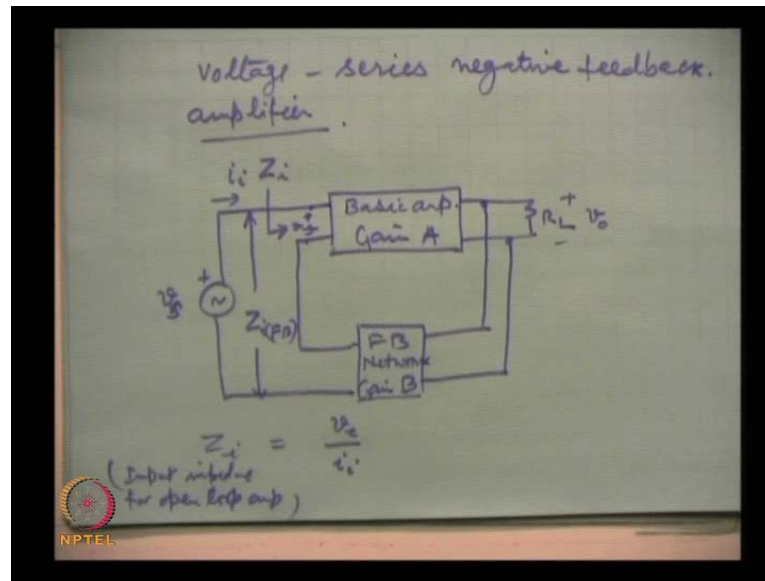 voltage - series negative feedback.
amplifier.
i_i Z_i
Basic amp.
Gain A
R_L + v_o -
+
v_s
Z_i(FB)
FB
Network
Gain B
Z_i = v_e / i_i
(Input
for open loop amp)
NPTEL